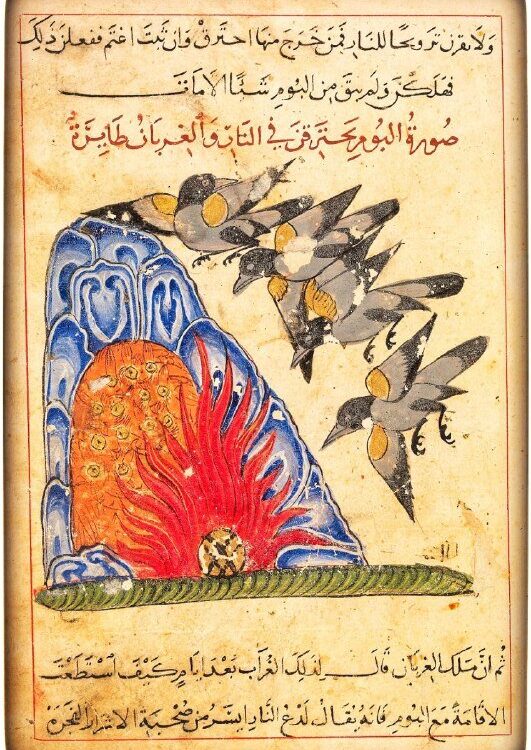 ولا يقرن ترويحا للنار فمن خرج منها احترق وان ثبت اغتم ففعلن ذلك
فهلكن ولم يبق من البوم شئا الا مات
صورة البوم يحترقن في النار والغربان طايرة
ثم ان ملك الغربان قال لذلك الغراب بعد ايام كيف استطعت
الاقامة مع البوم فانه يقال لدغ النار ايسر من صحبة الاشرار الفجرة